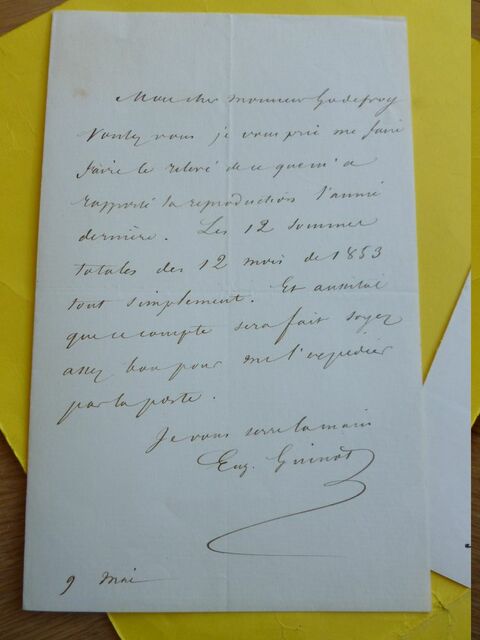 Mon cher monsieur Godefroy
Voulez vous je vous prie me faire
faire le relevé de ce que m'a
rapporté la reproduction l'année
dernière. Les 12 sommes
totales des 12 mois de 1853
tout simplement. Et aussitôt
que ce compte sera fait soyez
assez bon pour me l'expédier
par la poste.
Je vous serre la main
Eug. Guinot
9 Mai